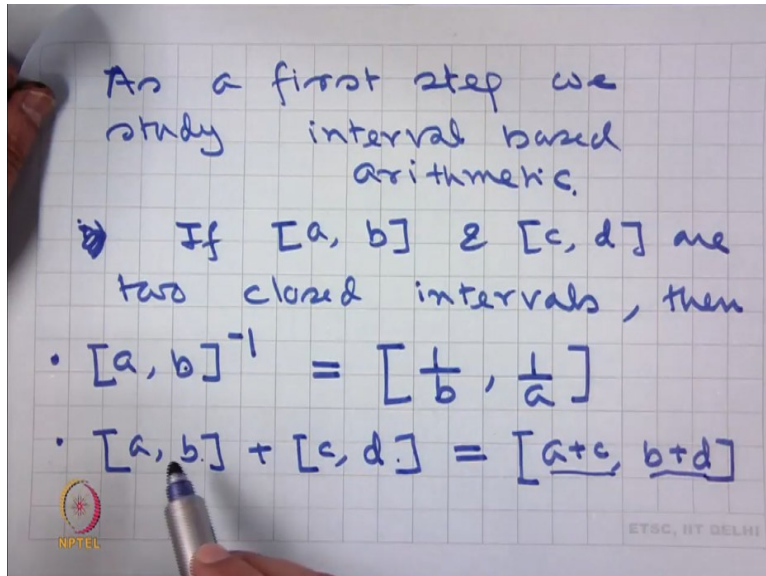 As a first step we
study interval based
arithmetic.
If [a, b] & [c, d] are
two closed intervals, then
• [a, b]⁻¹ = [1/b, 1/a]
• [a, b] + [c, d] = [a+c, b+d]
NPTEL
ETSC, IIT DELHI